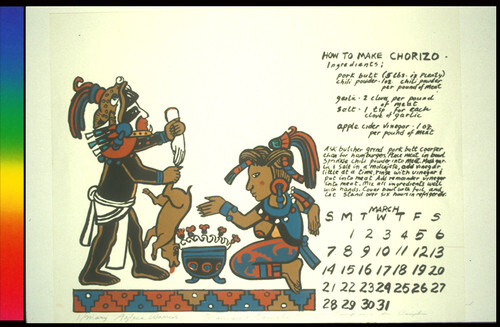 HOW TO MAKE CHORIZO.
Ingredients;
pork butt (5 lbs. is plenty)
chili powder - 1 oz chili powder
per pound of meat
garlic - 2 cloves per pound
of meat
salt - 1 tsp for each
clove of garlic
apple cider vinegar - 1 oz
per pound of meat
Ask butcher grind pork butt coarser
than for hamburger. Place meat in bowl
sprinkle chili powder into meat. Mash gar-
lic & salt in a molcajete, add vinegar
little at a time, rinse with vinegar &
put into meat Add remainder vinegar
into meat. Mix all ingredients well
with hands. Cover bowl with foil, and
let stand over six hours in refrigerator.
MARCH
S M T W T F S
1 2 3 4 5 6
7 8 9 10 11 12 13
14 15 16 17 18 19 20
21 22 23 24 25 26 27
28 29 30 31